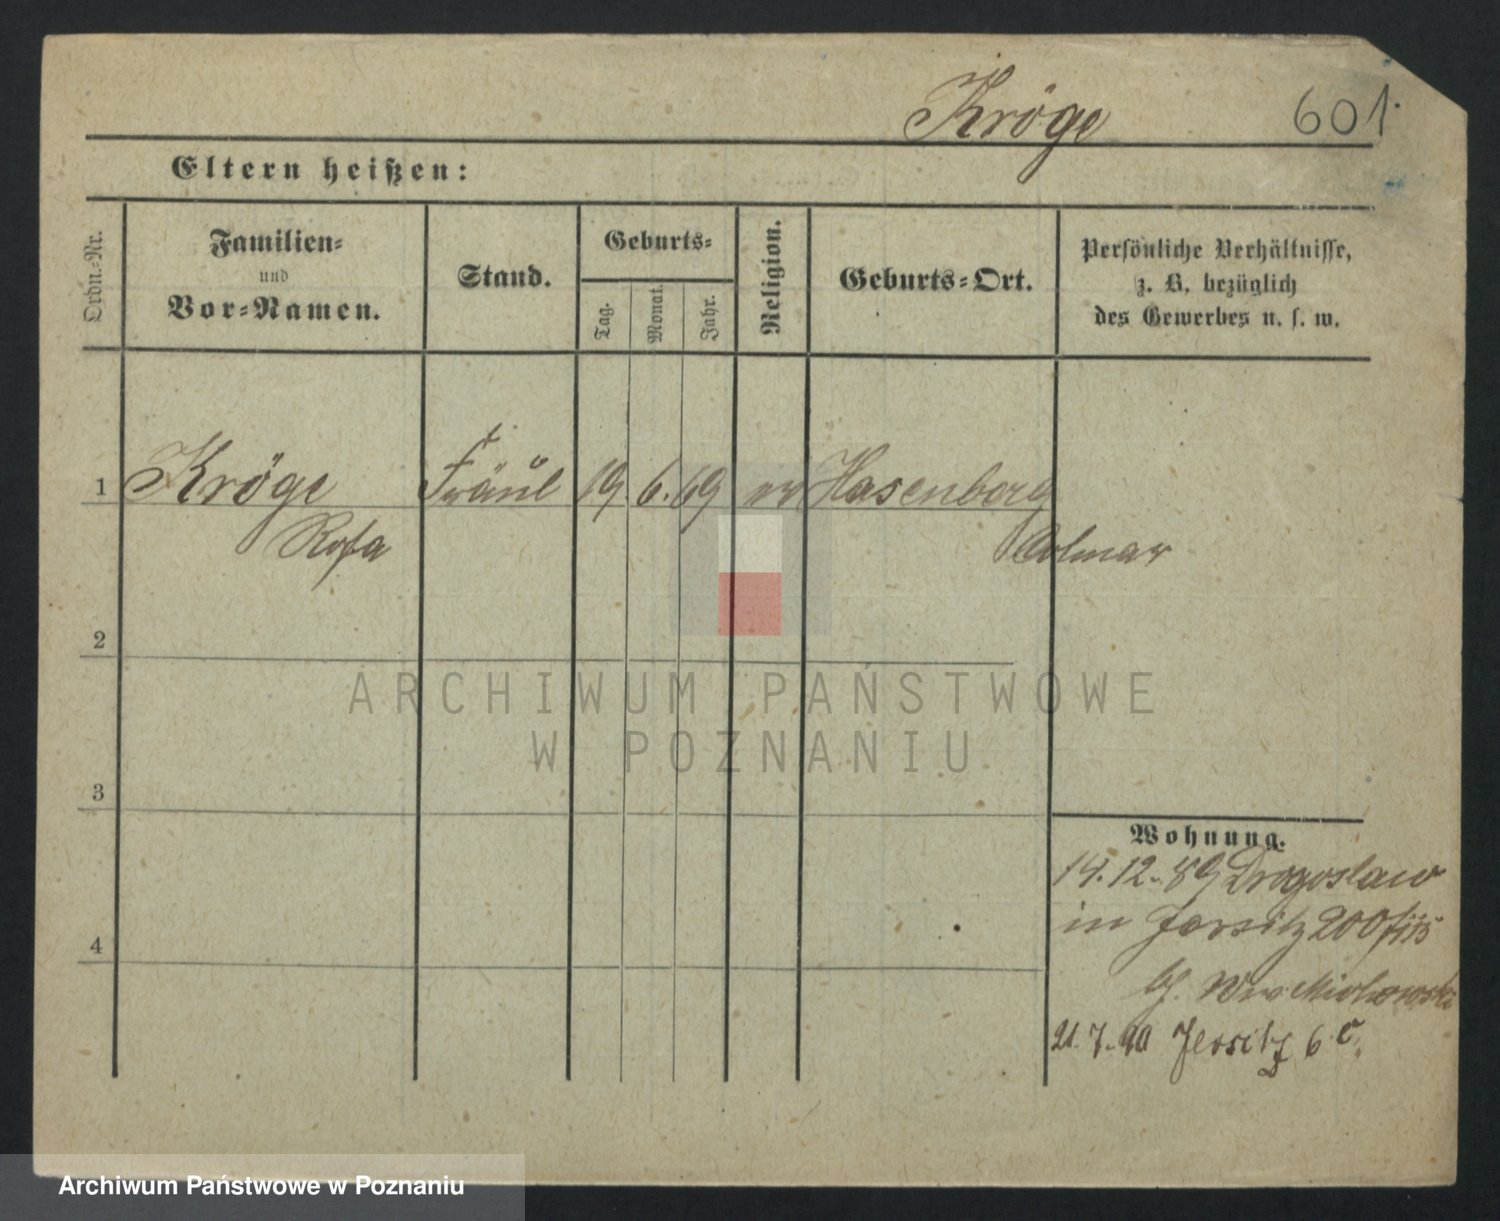 Kröge
601.
Eltern heißen:
Ordn.-Nr.
Familien-
und
Vor-Namen.
Stand.
Geburts-
Tag.
Monat.
Jahr.
Religion.
Geburts-Ort.
Persönliche Verhältnisse,
z. B. bezüglich
des Gewerbes u. s. w.
1 Kröge Fräul 19. 6. 69 ev Hasenberg
Rosa Colmar
2
ARCHIWUM PAŃSTWOWE
W POZNANIU
3
Wohnung.
14.12.89 Drogoslaw
in Jersitz 200
4
b/. Wwe Michowski
21.7.90 Jersitz 6 c.
Archiwum Państwowe w Poznaniu